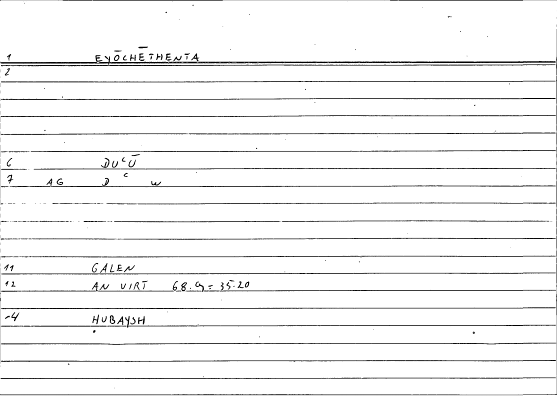 1 EYŌCHĒTHENTA
2
6 DUʿŪ
7 AG D ʿ W
11 GALEN
12 AN VIRT 68.9 = 35.20
-4 HUBAYSH